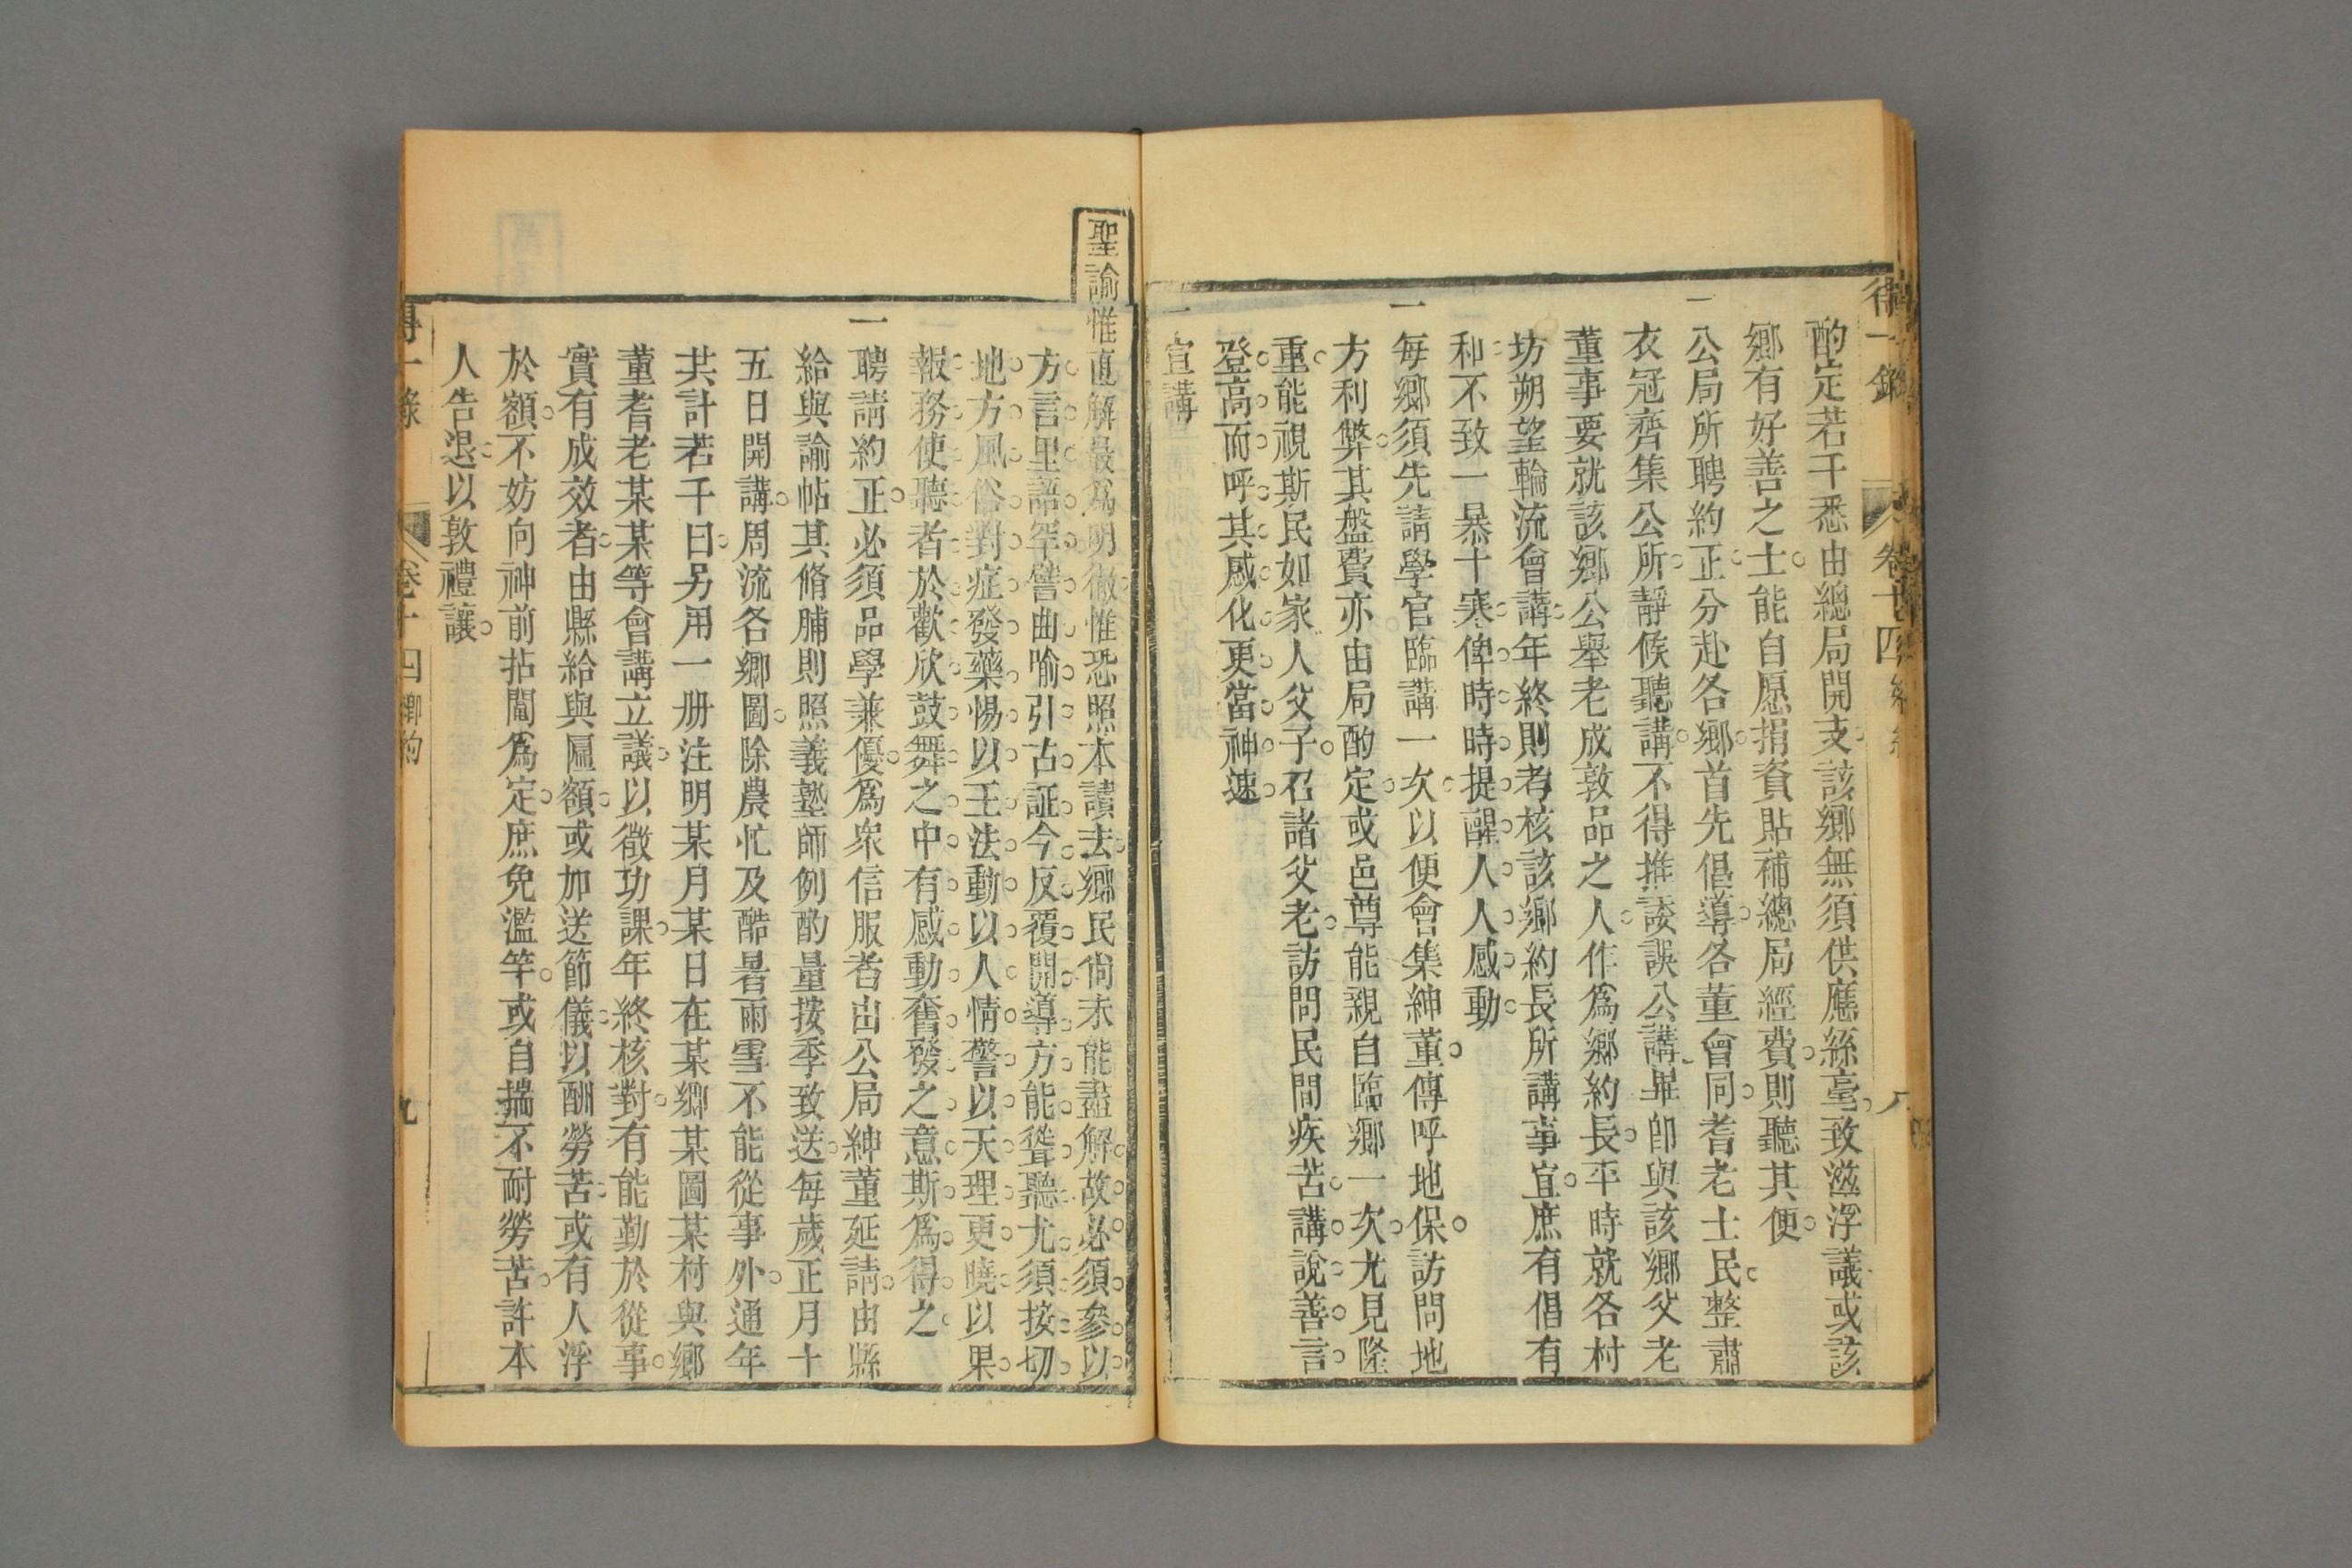 得一錄
卷十四
八
酌定若干悉由總局開支該鄉無須供應絲毫致滋浮議或該
鄉有好善之士能自愿捐資貼補總局經費則聽其便
一公局所聘約正分赴各鄉首先倡導各董會同耆老士民整肅
衣冠齊集公所靜候聽講不得推諉誤公講畢即與該鄉父老
董事要就該鄉公舉老成敦品之人作為鄉約長平時就各村
坊朔望輪流會講年終則考核該鄉約長所講事宜庶有倡有
和不致一暴十寒俾時時提醒人人感動
一每鄉須先請學官臨講一次以便會集紳董傳呼地保訪問地
方利弊其盤費亦由局酌定或邑尊能親自臨鄉一次尤見隆
重能視斯民如家人父子召諸父老訪問民間疾苦講說善言
登高而呼其感化更當神速
一宣講
聖諭惟直解最為明徹惟恐照本讀去鄉民尚未能盡解故必須參以
方言里語罕譬曲喻引古証今反覆開導方能聳聽尤須按切
地方風俗對症發藥惕以王法動以人情警以天理更曉以果
報務使聽者於歡欣鼓舞之中有感動奮發之意斯為得之
一聘請約正必須品學兼優為眾信服者由公局紳董延請由縣
給與諭帖其脩脯則照義塾師例酌量按季致送每歲正月十
五日開講周流各鄉圖除農忙及酷暑雨雪不能從事外通年
共計若干日另用一册注明某月某日在某鄉某圖某村與鄉
董耆老某某等會講立議以徵功課年終核對有能勤於從事
實有成效者由縣給與匾額或加送節儀以酬勞苦或有人浮
於額不妨向神前拈鬮為定庶免濫竽或自揣不耐勞苦許本
人告退以敦禮讓
得一錄
卷十四鄉約
九